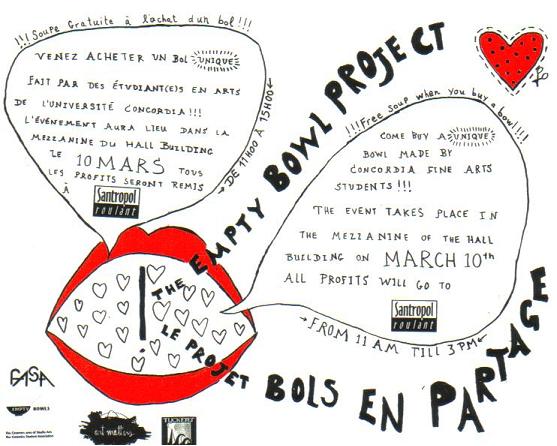 !!!Soupe Gratuite à l'achat d'un bol!!!
VENEZ ACHETER UN BOL UNIQUE
FAIT PAR DES ÉTUDIANT(E)S EN ARTS
DE L'UNIVERSITÉ CONCORDIA!!!
L'ÉVÉNEMENT AURA LIEU DANS LA
MEZZANINE DU HALL BUILDING
LE 10 MARS TOUS
LES PROFITS SERONT REMIS
À Santropol
roulant
DE 11H00 À 15H00
THE EMPTY BOWL PROJECT
!!!Free Soup when you buy a bowl!!!
COME BUY A UNIQUE
BOWL MADE BY
CONCORDIA FINE ARTS
STUDENTS!!!
THE EVENT TAKES PLACE IN
THE MEZZANINE OF THE HALL
BUILDING ON MARCH 10th
ALL PROFITS WILL GO TO
Santropol
roulant
FROM 11 AM TILL 3 PM
LE PROJET BOLS EN PARTAGE
FASA
EMPTY BOWLS
art matters